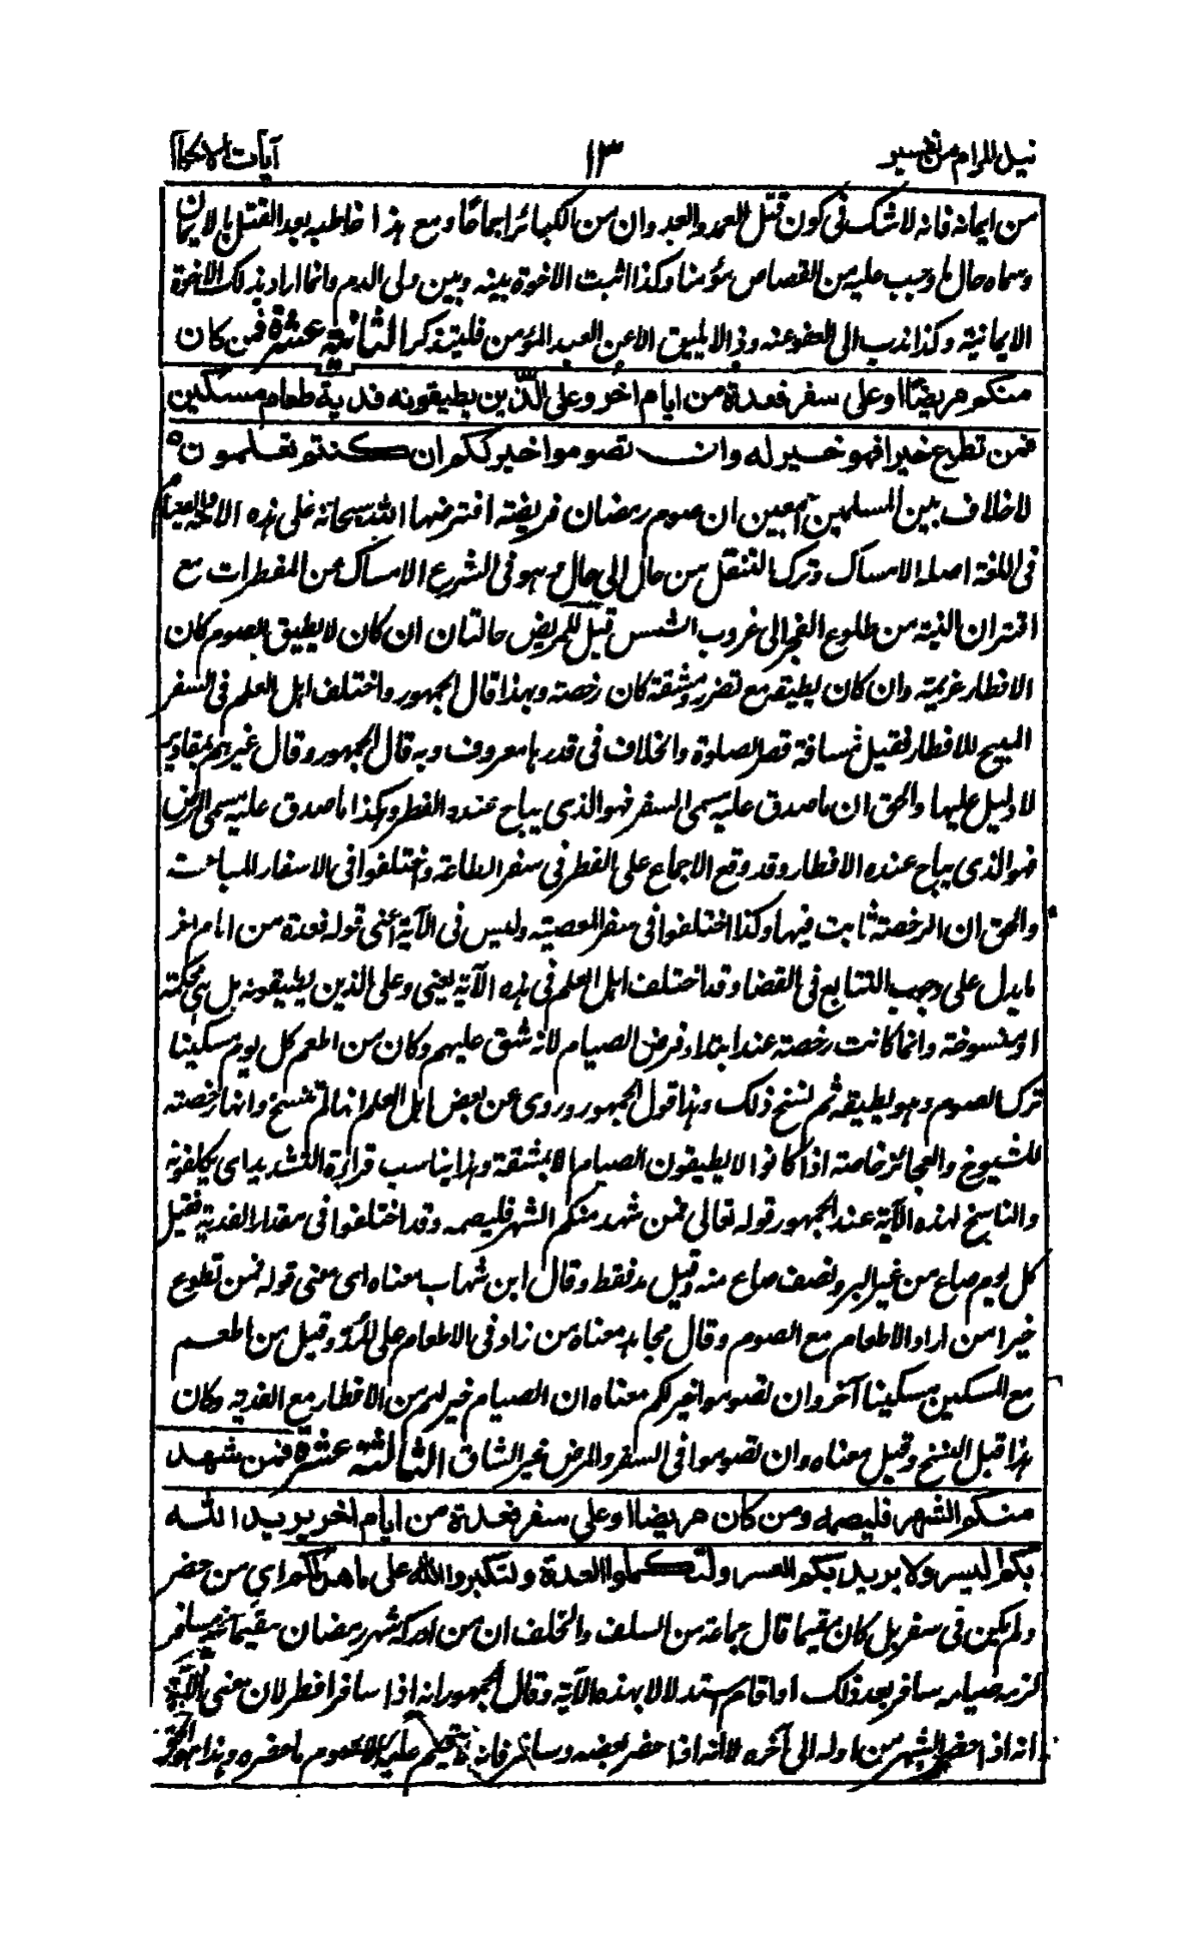 نيل المرام من تفسير
١٣
آيات الاحكام
من ايمانه فانه لا شك فى كون قتل العمد والعدوان من الكبائر اجماعا ومع هذا خاطبه بعد القتل بالايمان
وسماه حال ما وجب عليه من القصاص مؤمنا وكذا اثبت الاخوة بينه وبين ولى الدم وانما اراد بذلك الاخوة
الايمانية وكذا ندب الى العفو عنه وذا لا يليق الا عن العبد المؤمن فليتذكر الثانية عشرة فمن كان
منكم مريضا او على سفر فعدة من ايام اخر وعلى الذين يطيقونه فدية طعام مسكين
فمن تطوع خيرا فهو خير له وان تصوموا خير لكم ان كنتم تعلمون
لا خلاف بين المسلمين اجمعين ان صوم رمضان فريضة افترضها الله سبحانه على هذه الامة والصيام
فى اللغة اصله الامساك وترك التنقل من حال الى حال وهو فى الشرع الامساك عن المفطرات مع
اقتران النية من طلوع الفجر الى غروب الشمس قيل للمريض حالتان ان كان لا يطيق الصوم كان
الافطار عزيمة وان كان يطيقه مع تضرر ومشقة كان رخصة وبهذا قال الجمهور واختلف اهل العلم فى السفر
المبيح للافطار فقيل مسافة قصر الصلوة والخلاف فى قدرها معروف وبه قال الجمهور وقال غيرهم بمقادير
لا دليل عليها والحق ان ما صدق عليه مسمى السفر فهو الذى يباح عنده الفطر وهكذا ما صدق عليه مسمى المرض
فهو الذى يباح عنده الافطار وقد وقع الاجماع على الفطر فى سفر الطاعة واختلفوا فى الاسفار المباحة
والحق ان الرخصة ثابتة فيها وكذا اختلفوا فى سفر المعصية وليس فى الآية اعنى قوله فعدة من ايام اخر
ما يدل على وجوب التتابع فى القضا وقد اختلف اهل العلم فى هذه الآية يعنى وعلى الذين يطيقونه هل هى محكمة
او منسوخة وانما كانت رخصة عند ابتداء فرض الصيام لانه شق عليهم وكان من اطعم كل يوم مسكينا
ترك الصوم وهو يطيقه ثم نسخ ذلك وهذا قول الجمهور وروى عن بعض اهل العلم انها لم تنسخ وانها رخصة
للشيوخ والعجائز خاصة اذا كانوا لا يطيقون الصيام الا بمشقة وهذا يناسب قراءة التشديد اى يكلفونه
والناسخ لهذه الآية عند الجمهور قوله تعالى فمن شهد منكم الشهر فليصمه وقد اختلفوا فى مقدار الفدية فقيل
كل يوم صاع من غير البر ونصف صاع منه وقيل مد فقط وقال ابن شهاب معناه اى معنى قوله فمن تطوع
خيرا من اراد الاطعام مع الصوم وقال مجاهد معناه من زاد فى الاطعام على المد وقيل من اطعم
مع المسكين مسكينا آخر وان تصوموا خير لكم معناه ان الصيام خير لهم من الافطار مع الفدية وكان
هذا قبل النسخ وقيل معناه وان تصوموا فى السفر والمرض غير الشاق الثالثة عشرة فمن شهد
منكم الشهر فليصمه ومن كان مريضا او على سفر فعدة من ايام اخر يريد الله
بكم اليسر ولا يريد بكم العسر ولتكملوا العدة ولتكبروا الله على ما هداكم اى من حضر
ولم يكن فى سفر بل كان مقيما قال جماعة من السلف والخلف ان من ادركه شهر رمضان مقيما غير مسافر
لزمه صيامه سافر بعد ذلك او اقام استدلالا بهذه الآية وقال الجمهور انه اذا سافر افطر لان معنى الآية
انه اذا حضر الشهر من اوله الى آخره لا انه اذا حضر بعضه وسافر فانه لا يتحتم عليه الا صوم ما حضره وهذا هو الحق